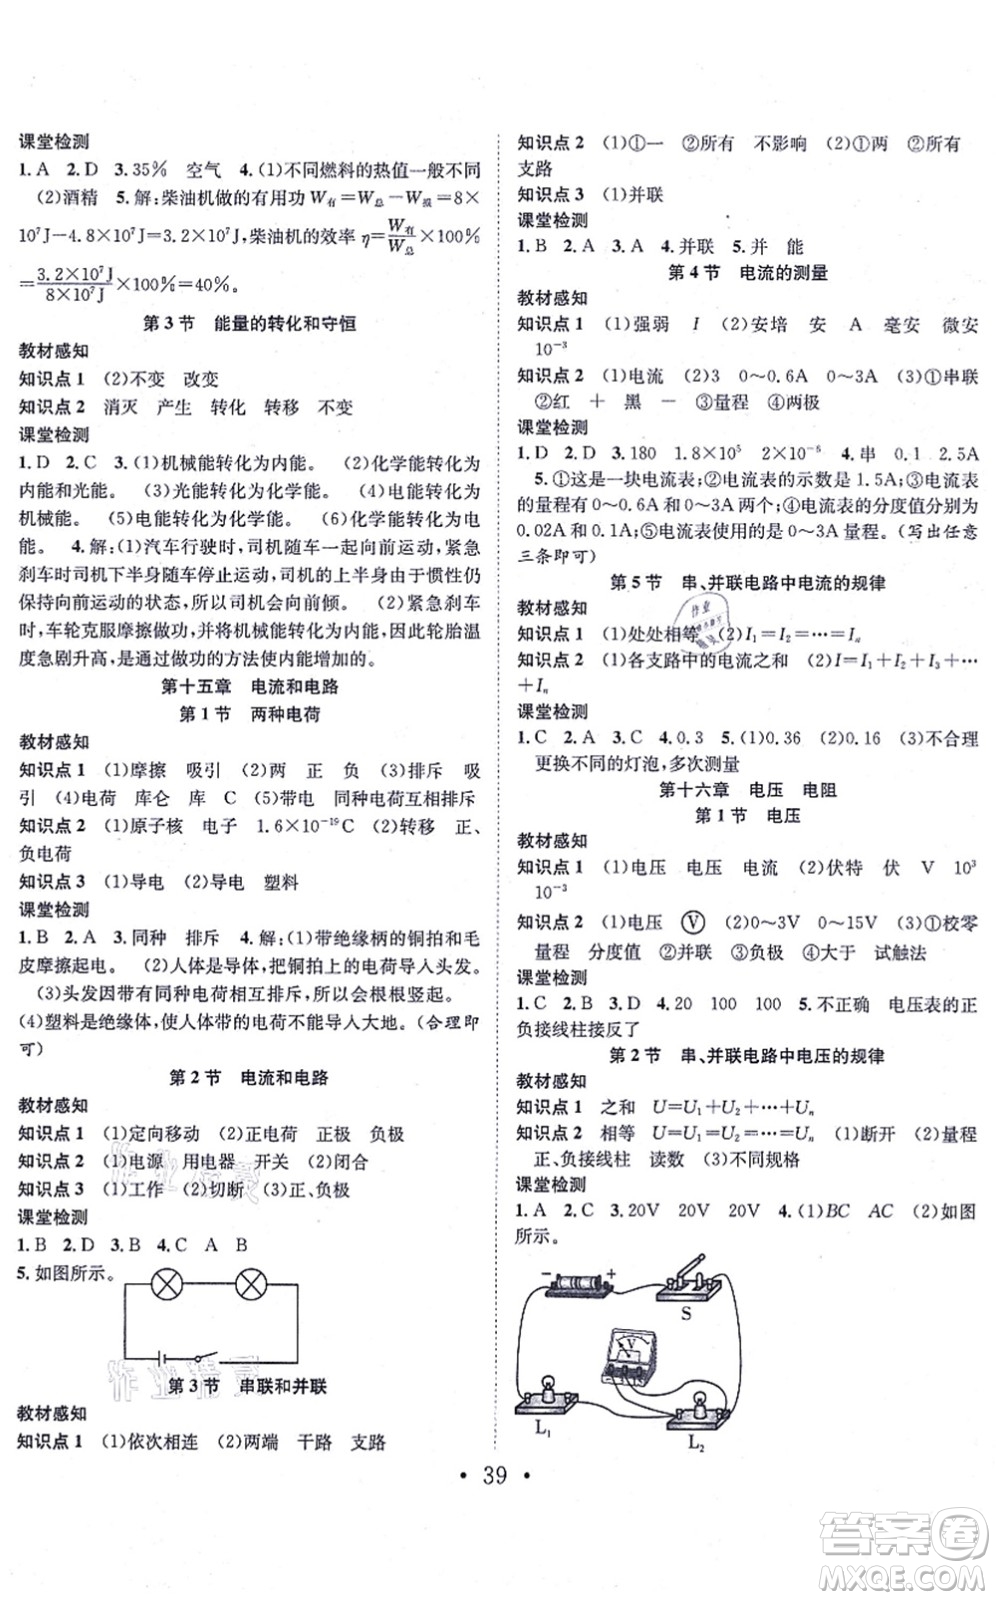 课堂检测
1. A　2. D　3. 35%　空气　4. (1)不同燃料的热值一般不同
(2)酒精　5. 解:柴油机做的有用功 W有＝W总－W损＝8×
10⁷J－4.8×10⁷J＝3.2×10⁷J,柴油机的效率 η＝W有/W总×100%
＝3.2×10⁷J/8×10⁷J×100%＝40%。
第 3 节　能量的转化和守恒
教材感知
知识点 1　(2)不变　改变
知识点 2　消灭　产生　转化　转移　不变
课堂检测
1. D　2. C　3. (1)机械能转化为内能。　(2)化学能转化为
内能和光能。　(3)光能转化为化学能。　(4)内能转化为
机械能。　(5)电能转化为化学能。　(6)化学能转化为电
能。　4. 解:(1)汽车行驶时,司机随车一起向前运动,紧急
刹车时司机下半身随车停止运动,司机的上半身由于惯性仍
保持向前运动的状态,所以司机会向前倾。　(2)紧急刹车
时,车轮克服摩擦做功,并将机械能转化为内能,因此轮胎温
度急剧升高,是通过做功的方法使内能增加的。
第十五章　电流和电路
第 1 节　两种电荷
教材感知
知识点 1　(1)摩擦　吸引　(2)两　正　负　(3)排斥　吸
引　(4)电荷　库仑　库　C　(5)带电　同种电荷互相排斥
知识点 2　(1)原子核　电子　1.6×10⁻¹⁹C　(2)转移　正、
负电荷
知识点 3　(1)导电　(2)导电　塑料
课堂检测
1. B　2. A　3. 同种　排斥　4. 解:(1)带绝缘柄的铜拍和毛
皮摩擦起电。　(2)人体是导体,把铜拍上的电荷导入头发。
(3)头发因带有同种电荷相互排斥,所以会根根竖起。
(4)塑料是绝缘体,使人体带的电荷不能导入大地。(合理即
可)
第 2 节　电流和电路
教材感知
知识点 1　(1)定向移动　(2)正电荷　正极　负极
知识点 2　(1)电源　用电器　开关　(2)闭合
知识点 3　(1)工作　(2)切断　(3)正、负极
课堂检测
1. B　2. D　3. B　4. C　A　B
5. 如图所示。
第 3 节　串联和并联
教材感知
知识点 1　(1)依次相连　(2)两端　干路　支路
知识点 2　(1)①一　②所有　不影响　(2)①两　②所有
支路
知识点 3　(1)并联
课堂检测
1. B　2. A　3. A　4. 并联　5. 并　能
第 4 节　电流的测量
教材感知
知识点 1　(1)强弱　I　(2)安培　安　A　毫安　微安
10⁻³
知识点 2　(1)电流　(2)3　0～0.6A　0～3A　(3)①串联
②红　＋　黑　－　③量程　④两极
课堂检测
1. D　2. D　3. 180　1.8×10⁵　2×10⁻⁶　4. 串　0.1　2.5A
5. ①这是一块电流表;②电流表的示数是 1.5A;③电流表
的量程有 0～0.6A 和 0～3A 两个;④电流表的分度值分别为
0.02A 和 0.1A;⑤电流表使用的 0～3A 量程。(写出任意
三条即可)
第 5 节　串、并联电路中电流的规律
教材感知
知识点 1　(1)处处相等　(2)I₁＝I₂＝…＝Iₙ
知识点 2　(1)各支路中的电流之和　(2)I＝I₁＋I₂＋I₃＋…
＋Iₙ
课堂检测
1. C　2. A　3. C　4. 0.3　5. (1)0.36　(2)0.16　(3)不合理
更换不同的灯泡,多次测量
第十六章　电压　电阻
第 1 节　电压
教材感知
知识点 1　(1)电压　电压　电流　(2)伏特　伏　V　10³
10⁻³
知识点 2　(1)电压　Ⓥ　(2)0～3V　0～15V　(3)①校零
量程　分度值　②并联　③负极　④大于　试触法
课堂检测
1. C　2. B　3. D　4. 20　100　100　5. 不正确　电压表的正
负接线柱接反了
第 2 节　串、并联电路中电压的规律
教材感知
知识点 1　之和　U＝U₁＋U₂＋…＋Uₙ
知识点 2　相等　U＝U₁＝U₂＝…＝Uₙ　(1)断开　(2)量程
正、负接线柱　读数　(3)不同规格
课堂检测
1. A　2. C　3. 20V　20V　20V　4. (1)BC　AC　(2)如图
所示。
－　＋
S
V
L₁
L₂
• 39 •
答案卷
MXQE.COM